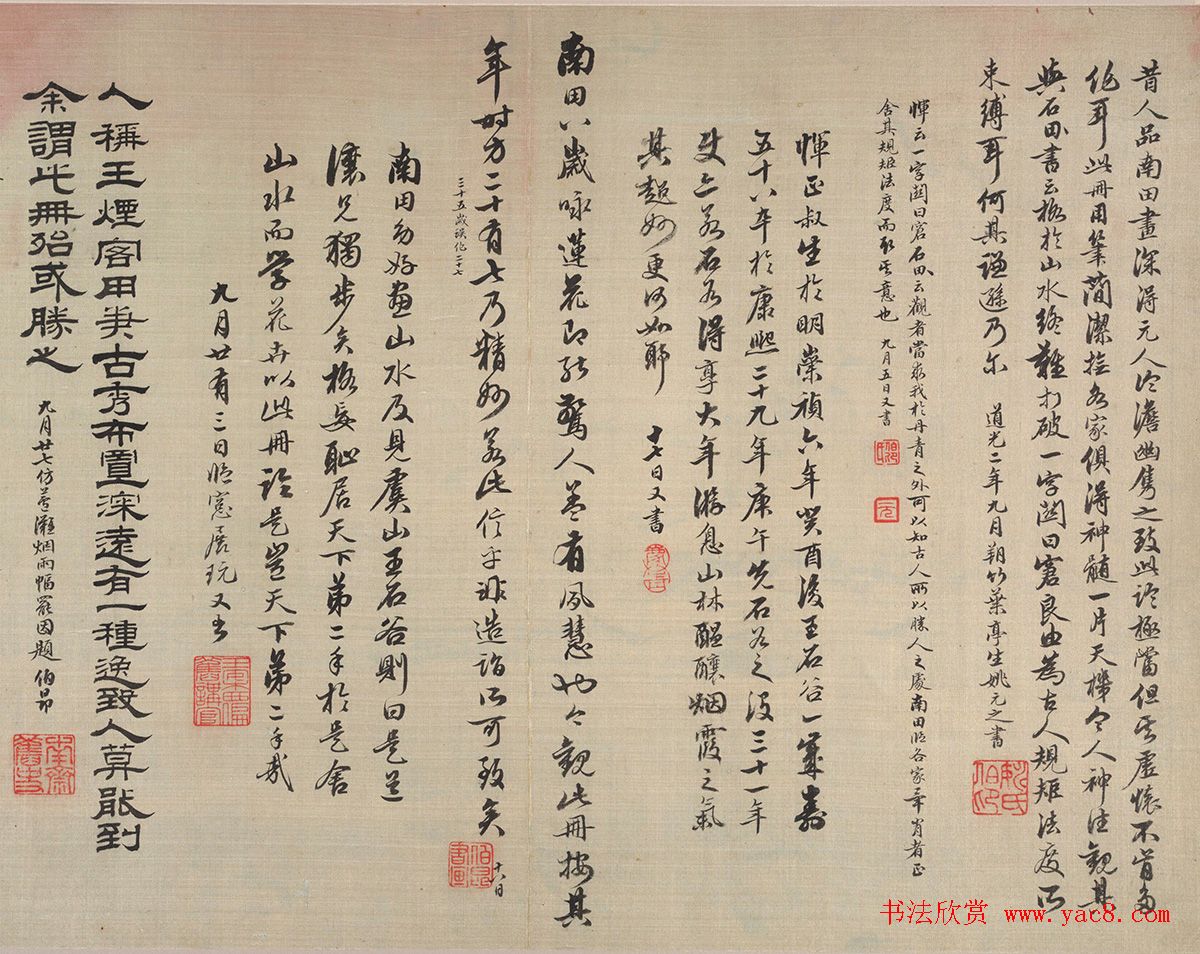 昔人品南田畫深得元人冷澹幽雋之致此論極當但其虛懷不肯多
作耳此冊用筆簡潔撫各家俱得神髓一片天機令人神往觀其
與石田書云格於山水終難打破一字關曰窘良由為古人規矩法度所
束縛耳何其謙遜乃爾 道光二年九月朔竹葉亭生姚元之書
惲云一字關曰窘石田云觀者當求我於丹青之外可以知古人所以勝人之處南田臨各家畢肖者正
含其規矩法度而取其意也 九月五日又書
惲正叔生於明崇禎六年癸酉後王石谷一歲壽
五十八卒於康熙二十九年庚午先石谷之沒三十一年
使之若石谷得享大年游息山林醞釀烟霞之氣
其超妙更何如耶 十七日又書
南田八歲咏蓮花即能驚人蓋有夙慧也今觀此冊按其
年時方二十有七乃精妙若此信乎非造詣所可致矣 十八日
三十五歲誤作二十七
南田多好畫山水及見虞山王石谷則曰是道
讓兄獨步矣格妄恥居天下第二手於是舍
山水而學花卉以此冊論是豈天下第二手哉
九月廿有三日晴窗展玩又書
人稱王煙客用筆古秀布置深遠有一種逸致人莫能到
余謂此冊殆或勝之
九月廿七仿黃灘烟雨幅罷因題 伯昂
书法欣赏 www.yac8.com